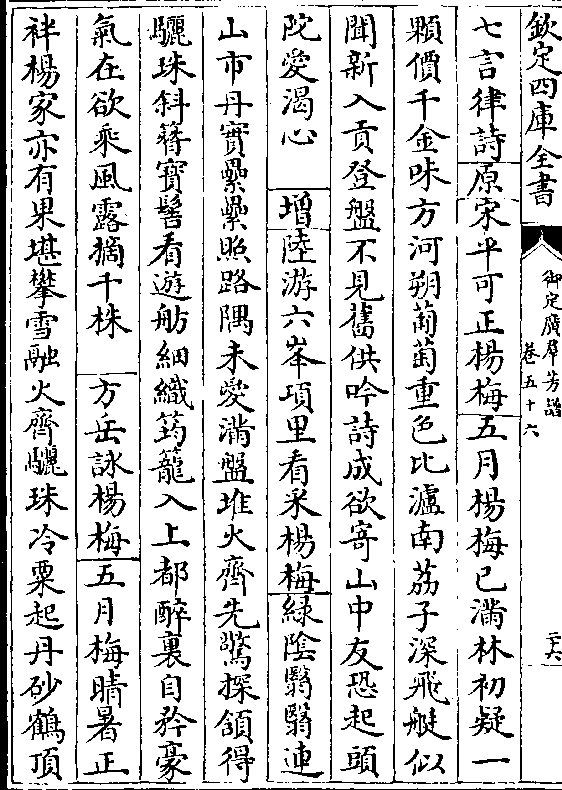 欽定四庫全書
御定廣羣芳譜
卷五十六
二十六
七言律詩原宋平可正楊梅五月楊梅已滿林初疑一
顆價千金味方河朔葡萄重色比瀘南荔子深飛艇似
聞新入貢登盤不見舊供吟詩成欲寄山中友恐起頭
陀愛渴心　增陸游六峯項里看采楊梅綠陰翳翳連
山市丹實纍纍照路隅未愛滿盤堆火齊先驚探頷得
驪珠斜簪寶髻看遊舫細織筠籠入上都醉裏自矜豪
氣在欲乘風露摘千株　方岳詠楊梅五月梅晴暑正
袢楊家亦有果堪攀雪融火齊驪珠冷粟起丹砂鶴頂